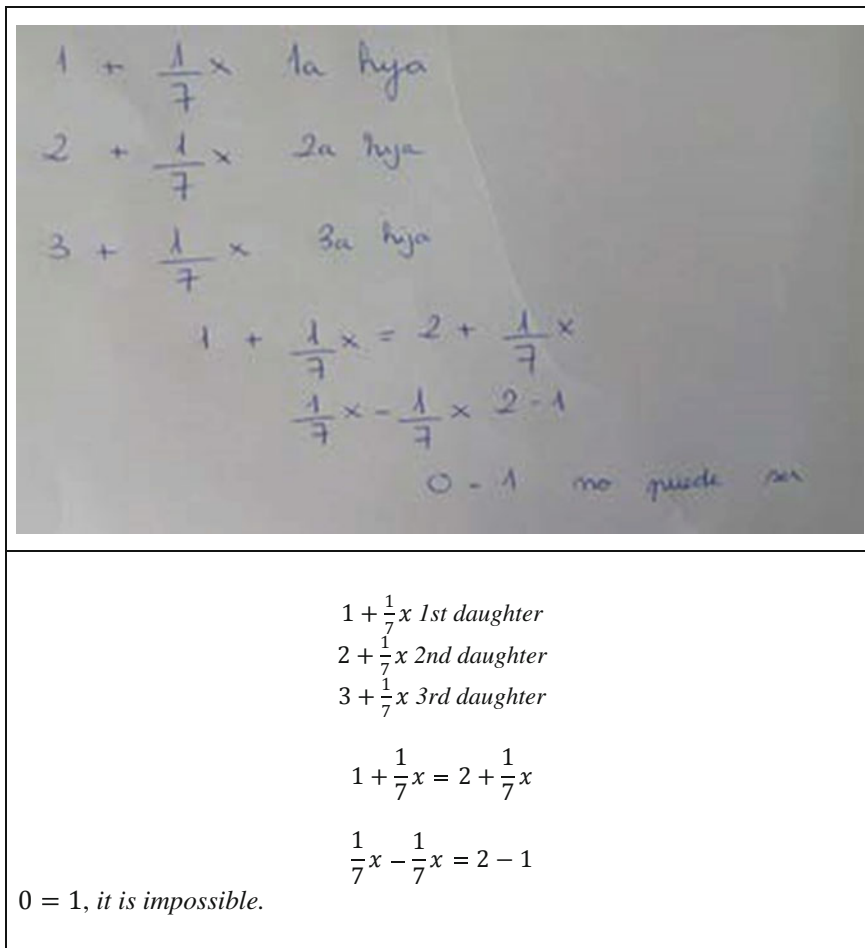 1 + 1/7 x 1a hya
2 + 1/7 x 2a hya
3 + 1/7 x 3a hija
1 + 1/7 x = 2 + 1/7 x
1/7 x - 1/7 x 2 - 1
0 - 1 no puede ser
1 + 1/7 x 1st daughter
2 + 1/7 x 2nd daughter
3 + 1/7 x 3rd daughter
1 + 1/7 x = 2 + 1/7 x
1/7 x - 1/7 x = 2 - 1
0 = 1, it is impossible.